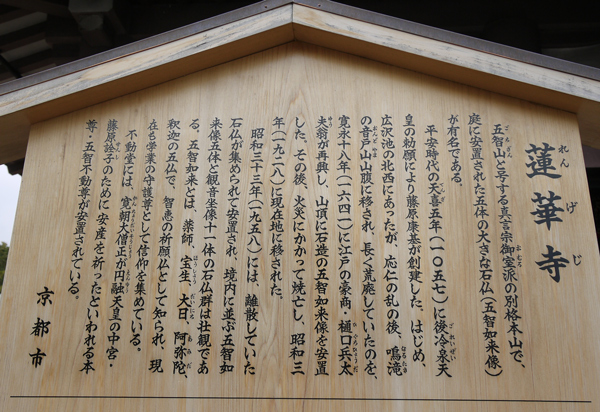 蓮華寺
れんげじ
五智山と号する真言宗御室派の別格本山で、
庭に安置された五体の大きな石仏(五智如来像)
が有名である。
平安時代の天喜五年(一〇五七)に後冷泉天
皇の勅願により藤原康基が創建した。はじめ、
広沢池の北西にあったが、応仁の乱の後、鳴滝
の音戸山山腹に移され、長く荒廃していたのを、
寛永十八年(一六四一)に江戸の豪商・樋口兵太
夫翁が再興し、山頂に石造の五智如来像を安置
した。その後、火災にかかって焼亡し、昭和三
年(一九二八)に現在地に移された。
昭和三十三年(一九五八)には、離散していた
石仏が集められて安置され、境内に並ぶ五智如
来像五体と観音坐像十一体の石仏群は壮観であ
る。五智如来とは、薬師、宝生、大日、阿弥陀、
釈迦の五仏で、智恵の祈願仏として知られ、現
在も学業の守護尊として信仰を集めている。
不動堂には、寛朝大僧正が円融天皇の中宮・
藤原詮子のために安産を祈ったといわれる本
尊・五智不動尊が安置されている。
京都市